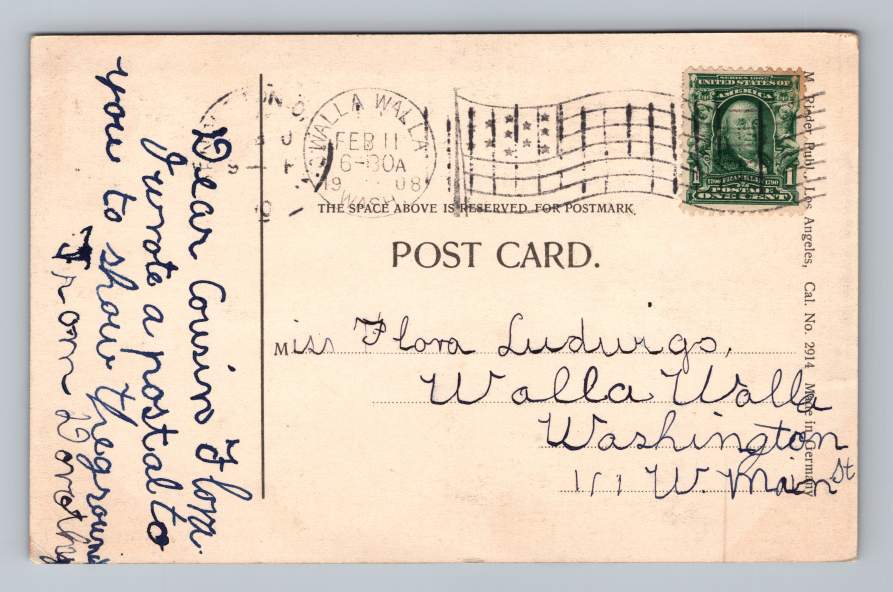 Dear Cousin Flora.
I wrote a postal to
you to show the ground
From Dorothy
WALLA WALLA
FEB 11
6-30A
19 08
WASH.
SERIES 1902
UNITED STATES OF
AMERICA
1706 FRANKLIN 1790
1 1
POSTAGE
ONE CENT
THE SPACE ABOVE IS RESERVED FOR POSTMARK
POST CARD.
Miss Flora Ludwigs,
Walla Walla
Washington
111 W. Main St
M. Rieder, Publ., Los Angeles, Cal. No. 2914 Made in Germany